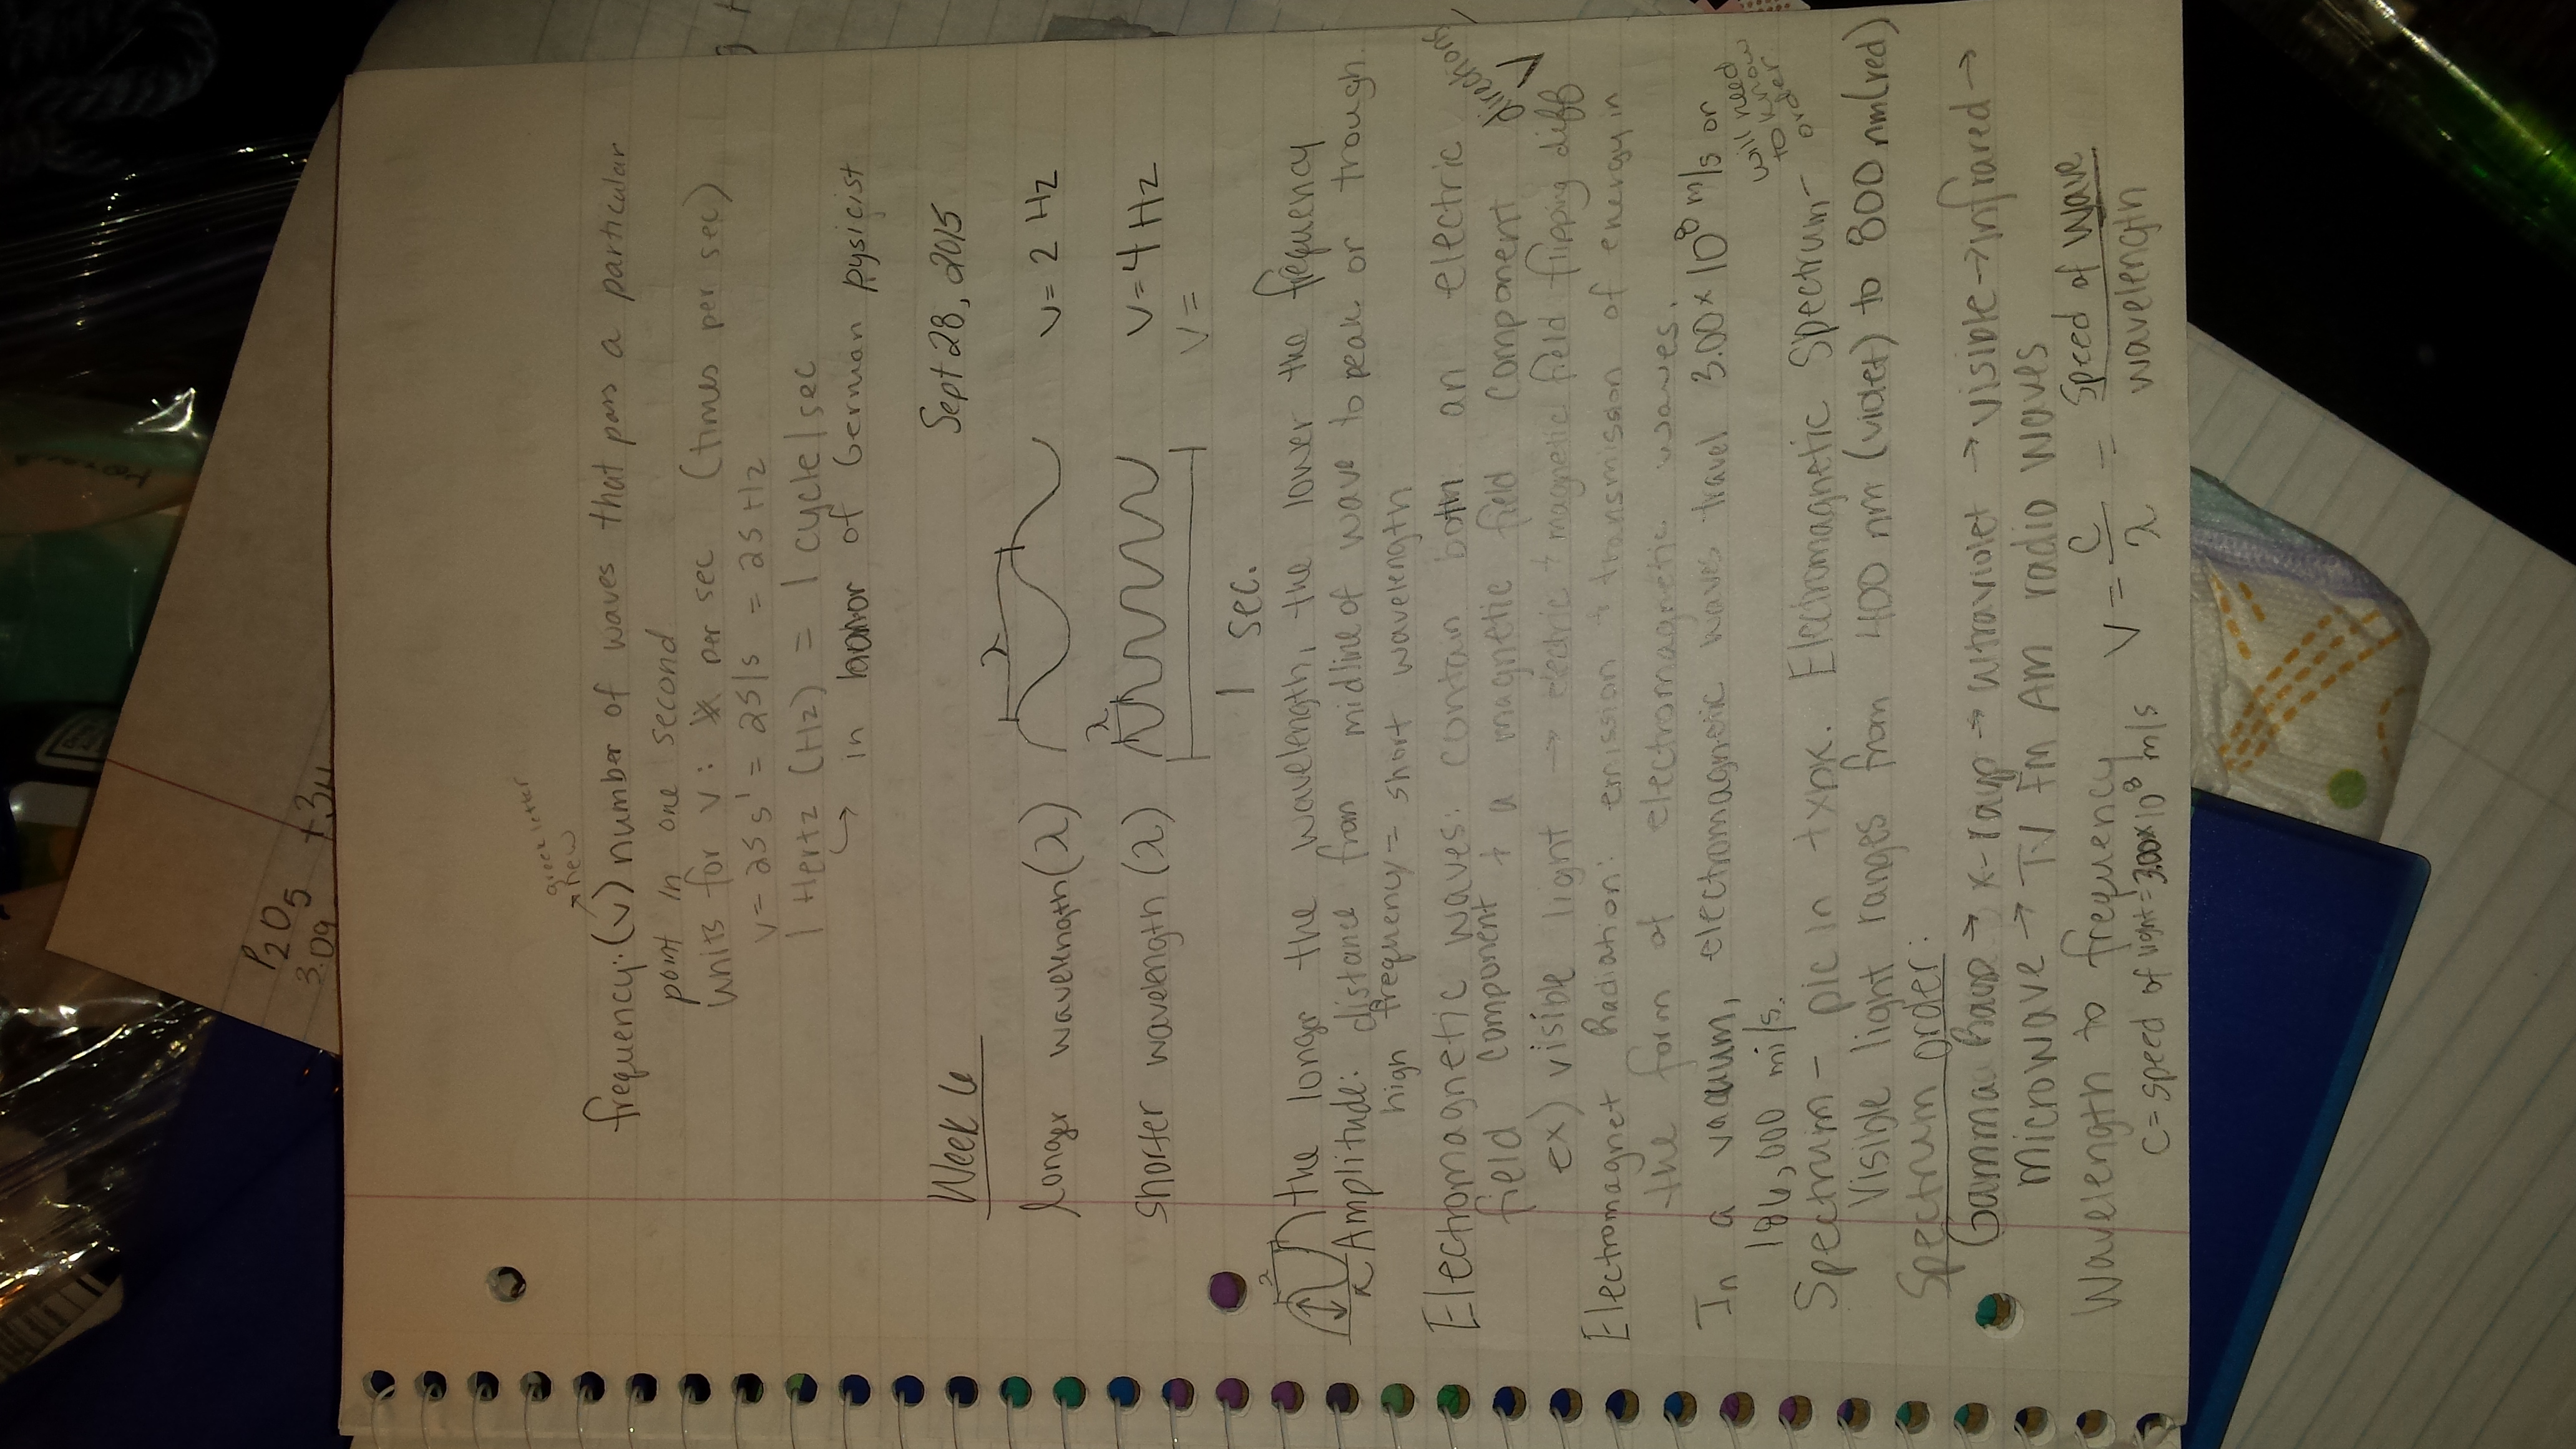 greek letter
new
frequency: (v) number of waves that pass a particular
point in one second
units for v: per sec (times per sec)
v = 25 s' = 25/s = 25 Hz
1 Hertz (Hz) = 1 cycle/sec
↳ in honor of German pysicist
Week 6 Sept 28, 2015
longer wavelength (λ) λ v = 2 Hz
shorter wavelength (λ) λ v = 4 Hz
v =
1 sec.
λ the longer the wavelength, the lower the frequency
Amplitude: distance from midline of wave to peak or trough.
high frequency = short wavelength
Electromagnetic waves: contain both an electric
field component + a magnetic field component
ex) visible light → electric + magnetic field flipping diff directions
Electromagnet Radiation: emission + transmission of energy in
the form of electromagnetic waves.
In a vacuum, electromagnetic waves travel 3.00 x 10⁸ m/s or
186,000 mi/s.
will need
to know
order
Spectrum - pic in txbk. Electromagnetic Spectrum-
Visible light ranges from 400 nm (violet) to 800 nm (red)
Spectrum order:
Gamma Rays → x-rays → ultraviolet → visible → infrared →
microwave → TV FM AM radio waves
Wavelength to frequency v = c/λ = speed of wave/wavelength
C = speed of light = 3.00x10⁸ m/s
P₂O₅
3.09